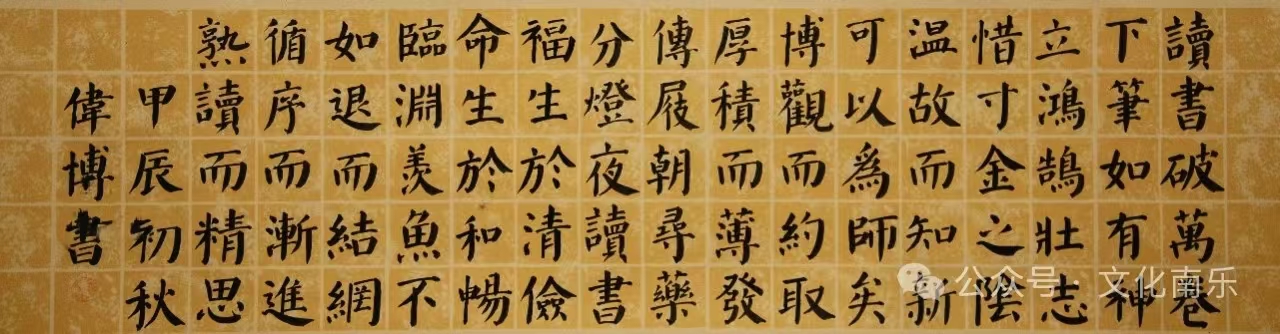 讀書破萬卷
下筆如有神
立鴻鵠壯志
惜寸金之陰
温故而知新
可以為師矣
博觀而約取
厚積而薄發
傳屐朝尋藥
分燈夜讀書
福生於清儉
命生於和暢
臨淵羨魚不
如退而結網
循序而漸進
熟讀而精思
甲辰初秋
偉博書
公众号·文化南乐